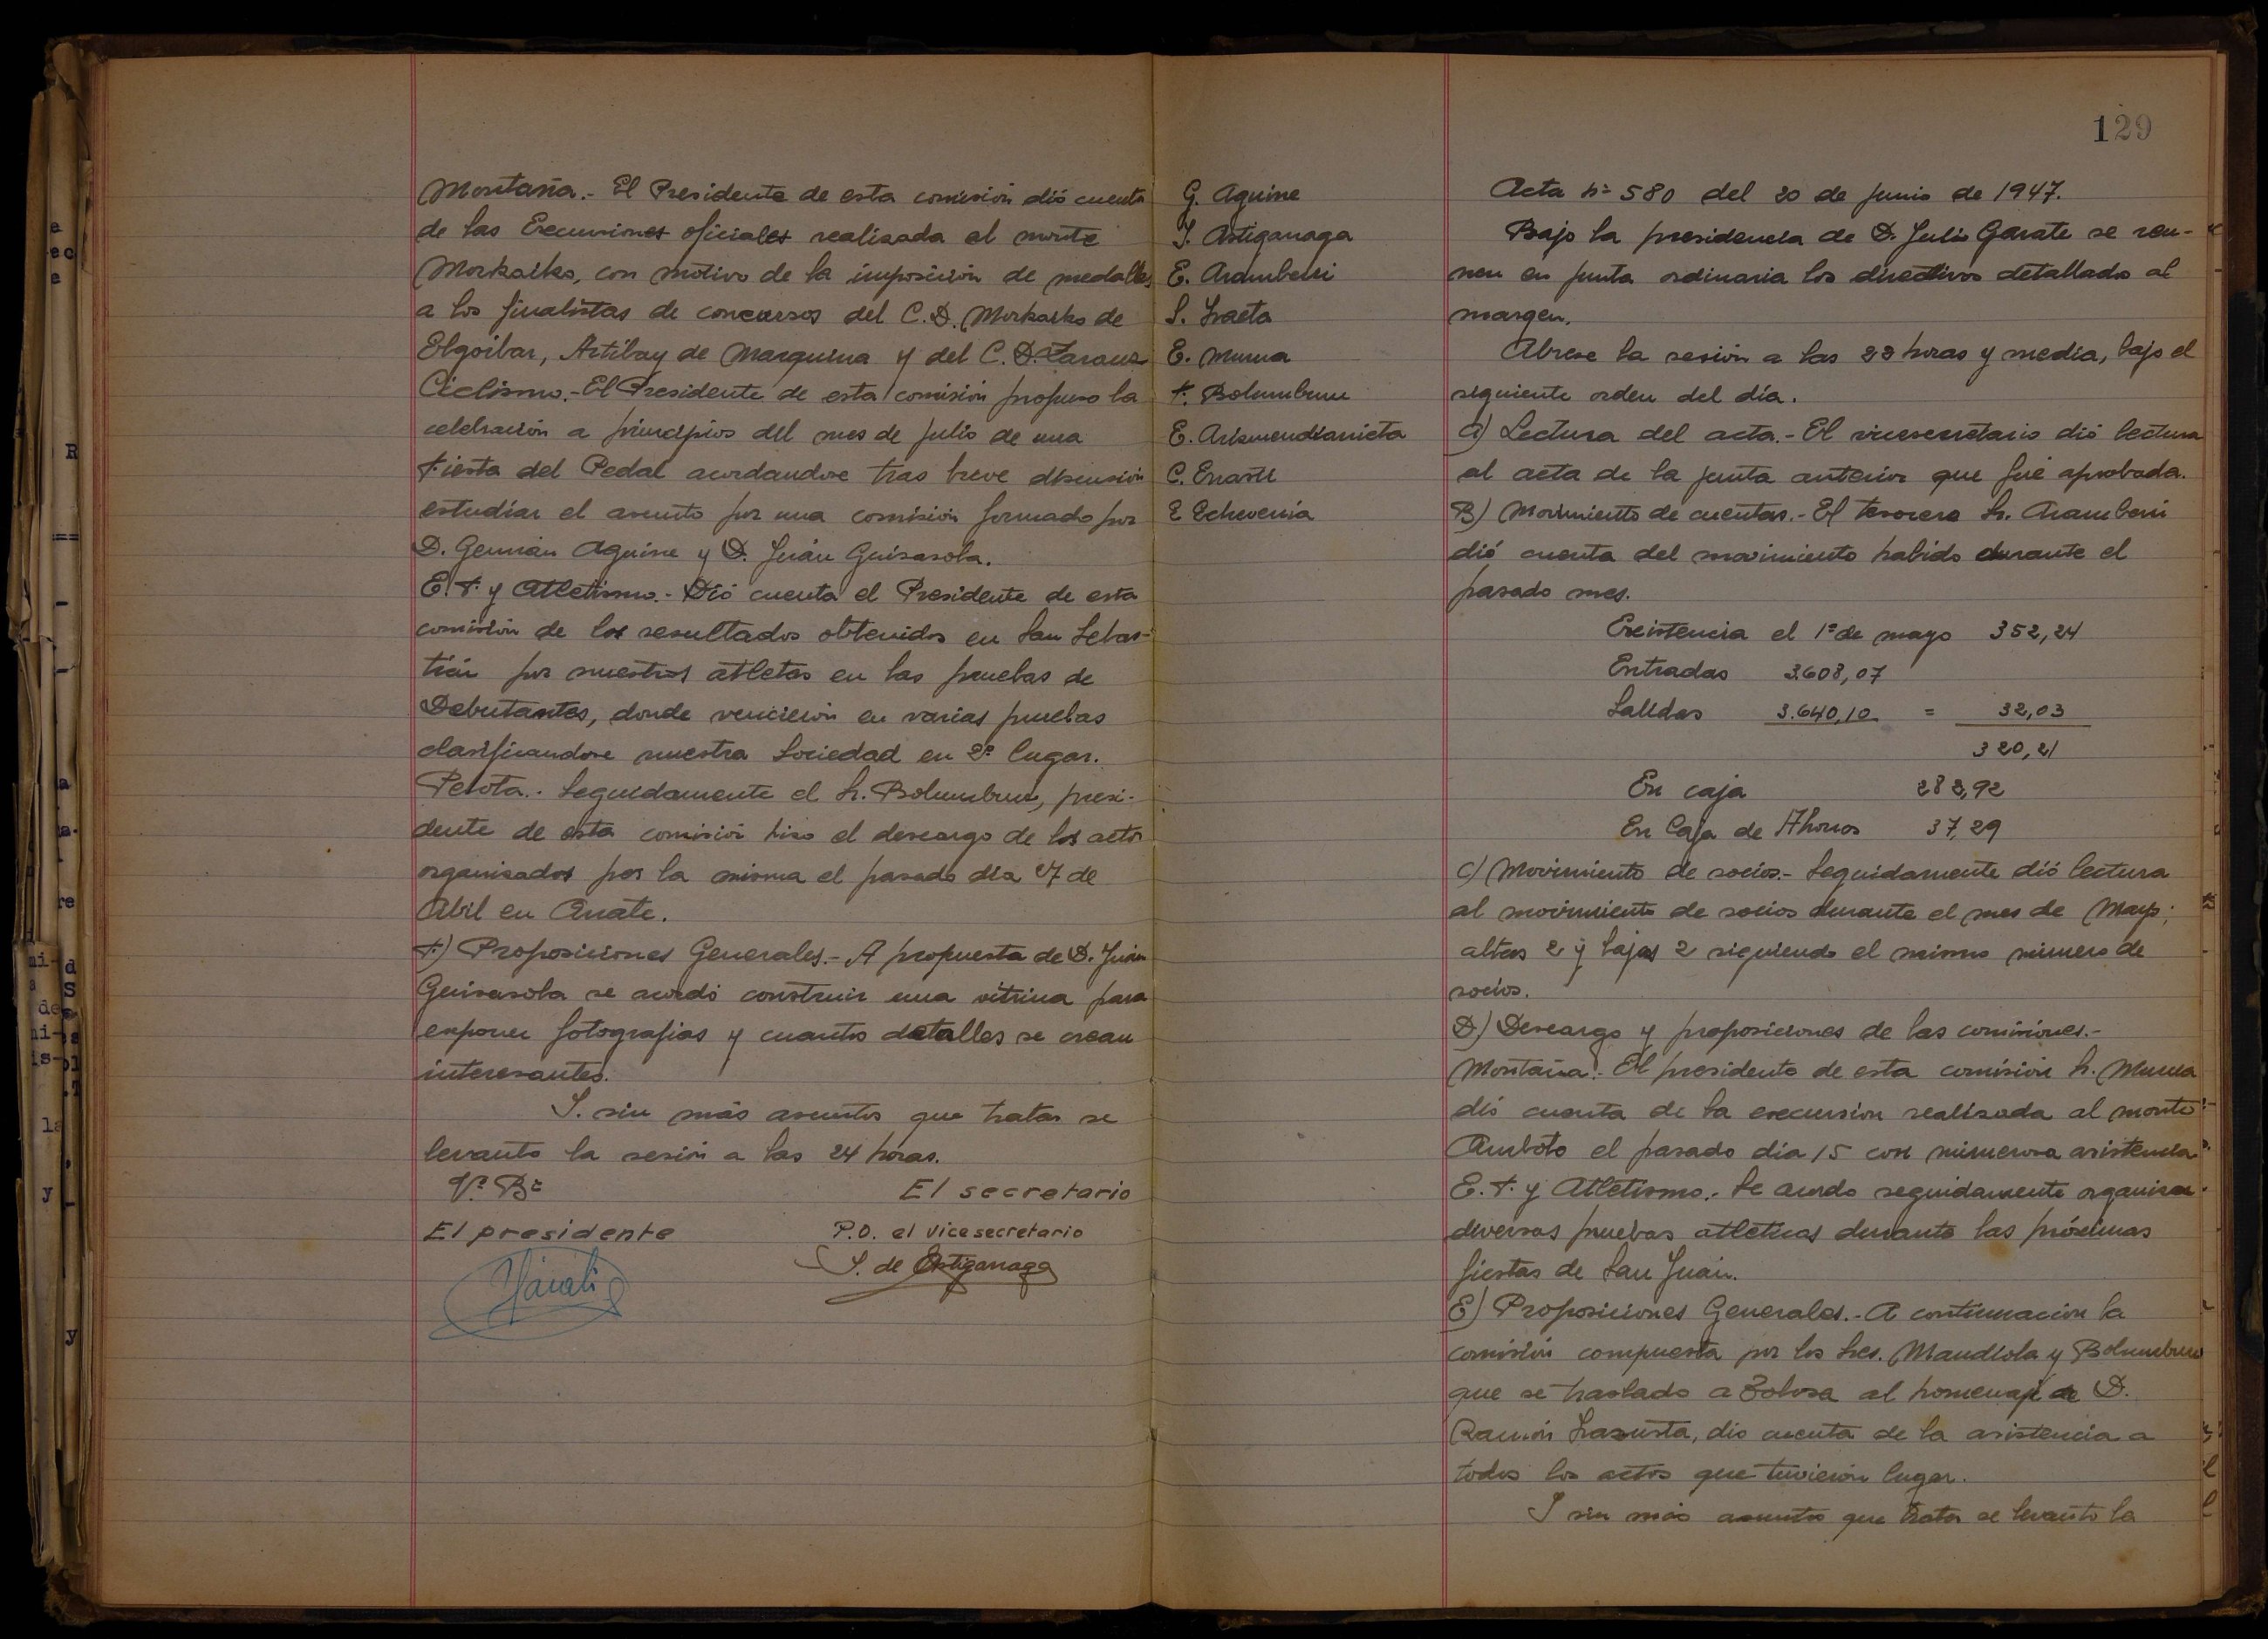 Montaña.- El Presidente de esta comisión dió cuenta
de las Excursiones oficiales realizada al monte
Morkaiko, con motivo de la imposición de medallas
a los finalistas de concursos del C.D. Morkaiko de
Elgoibar, Artibay de Marquina y del C.D. Zarauz
Ciclismo.- El Presidente de esta comisión propuso la
celebración a principios del mes de julio de una
Fiesta del Pedal acordandose tras breve discusión
estudiar el asunto por una comisión formado por
D. Germán Aguirre y D. Juán Guisasola.
E.F. y Atletismo.- Dió cuenta el Presidente de esta
comisión de los resultados obtenidos en San Sebas-
tián por nuestros atletas en las pruebas de
Debutantes, donde vencieron en varias pruebas
clasificandose nuestra Sociedad en 2º lugar.
Pelota.- Seguidamente el Sr. Bolumburu, presi-
dente de esta comisión hizo el descargo de los actos
organizados por la misma el pasado día 27 de
Abril en Arrate.
F.) Proposiciones Generales.- A propuesta de D. Juán
Guisasola se acordó construir una vitrina para
exponer fotografias y cuantos detalles se crean
interesantes.
Y. sin más asuntos que tratar se
levanto la sesión a las 24 horas.
Vº Bº El secretario
El presidente P.O. el vicesecretario
Gárate Y. de Astiganaga
G. Aguirre
Y. Astiganaga
E. Aramberri
S. Iraeta
E. Murua
F. Bolumburu
E. Arismendiarrieta
C. Errasti
E Echeverria
129
Acta nº 580 del 20 de Junio de 1947.
Bajo la presidencia de D. Julio Gárate se reu-
nen en junta ordinaria los directivos detallado al
margen.
Abrese la sesión a las 22 horas y media, bajo el
siguiente orden del día.
A) Lectura del acta.- El vicesecretario dió lectura
al acta de la junta anterior que fué aprobada.
B) Movimiento de cuentas.- El tesorero Sr. Aramberri
dió cuenta del movimiento habido durante el
pasado mes.
Existencia el 1º de mayo 352,24
Entradas 3.608,07
Salidas 3.640,10 = 32,03
320,21
En caja 282,92
En Caja de Ahorros 37,29
C) Movimiento de socios.- Seguidamente dió lectura
al movimiento de socios durante el mes de Mayo;
altas 2 y bajas 2 siguiendo el mismo número de
socios.
D) Descargo y proposiciones de las comisiones.-
Montaña.- El presidente de esta comisión Sr. Murua
dió cuenta de la excursión realizada al monte
Amboto el pasado día 15 con numerosa asistencia
E.F. y Atletismo.- Se acordo seguidamente organizar
diversas pruebas atleticas durante las próximas
fiestas de San Juán.
E) Proposiciones Generales.- A continuación la
comisión compuesta por los Sres. Mandiola y Bolumburu
que se traslado a Tolosa al homenaje de D.
Ramón Irazusta, dio cuenta de la asistencia a
todos los actos que tuvieron lugar.
Y sin más asuntos que tratar se levantó la